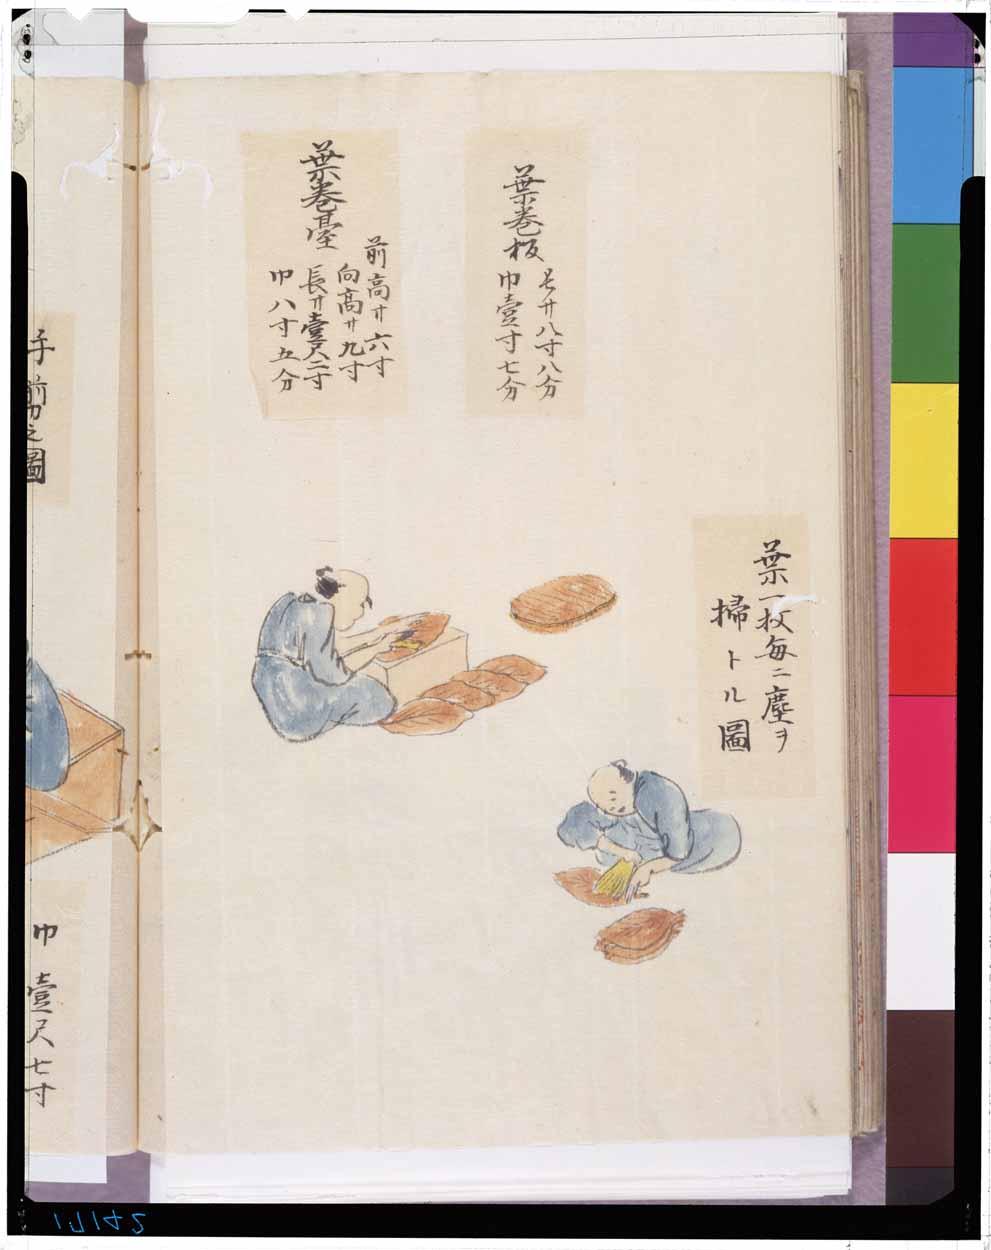 葉一枚毎ニ塵ヲ
掃トル圖
葉巻板
長サ八寸八分
巾壹寸七分
葉巻臺
前高サ六寸
向高サ九寸
長サ壹尺二寸
巾八寸五分
手前
之圖
巾壹尺七寸
17142